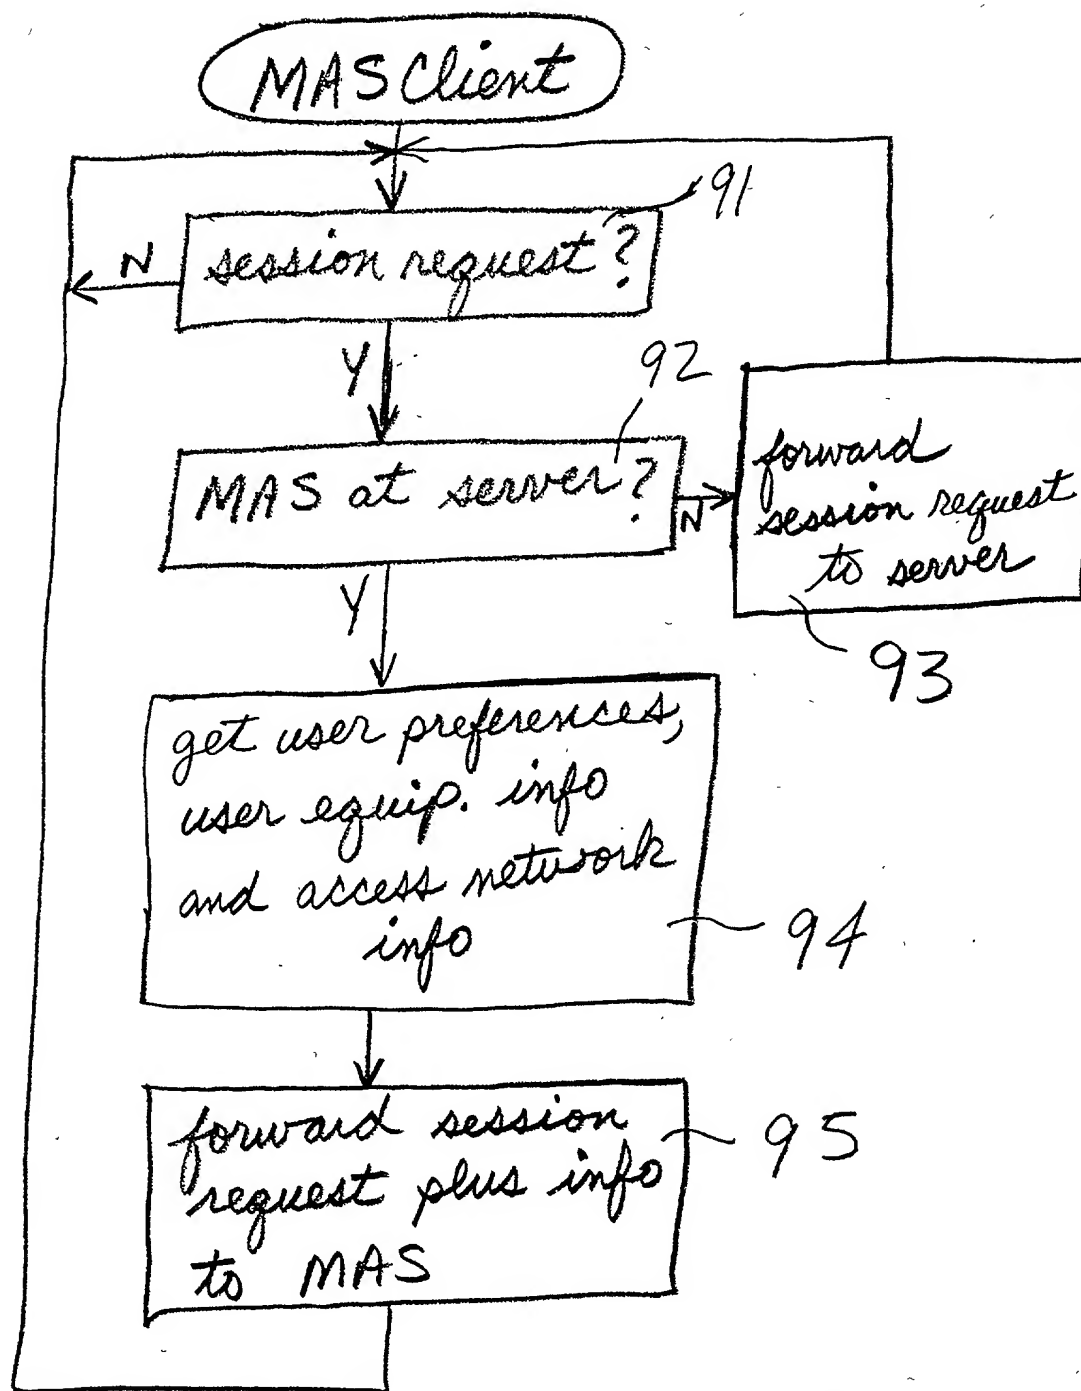 MAS Client
91
session request?
N
Y
92
MAS at server?
N
forward
session request
to server
93
Y
get user preferences,
user equip. info
and access network
info
94
forward session
request plus info
to MAS
95